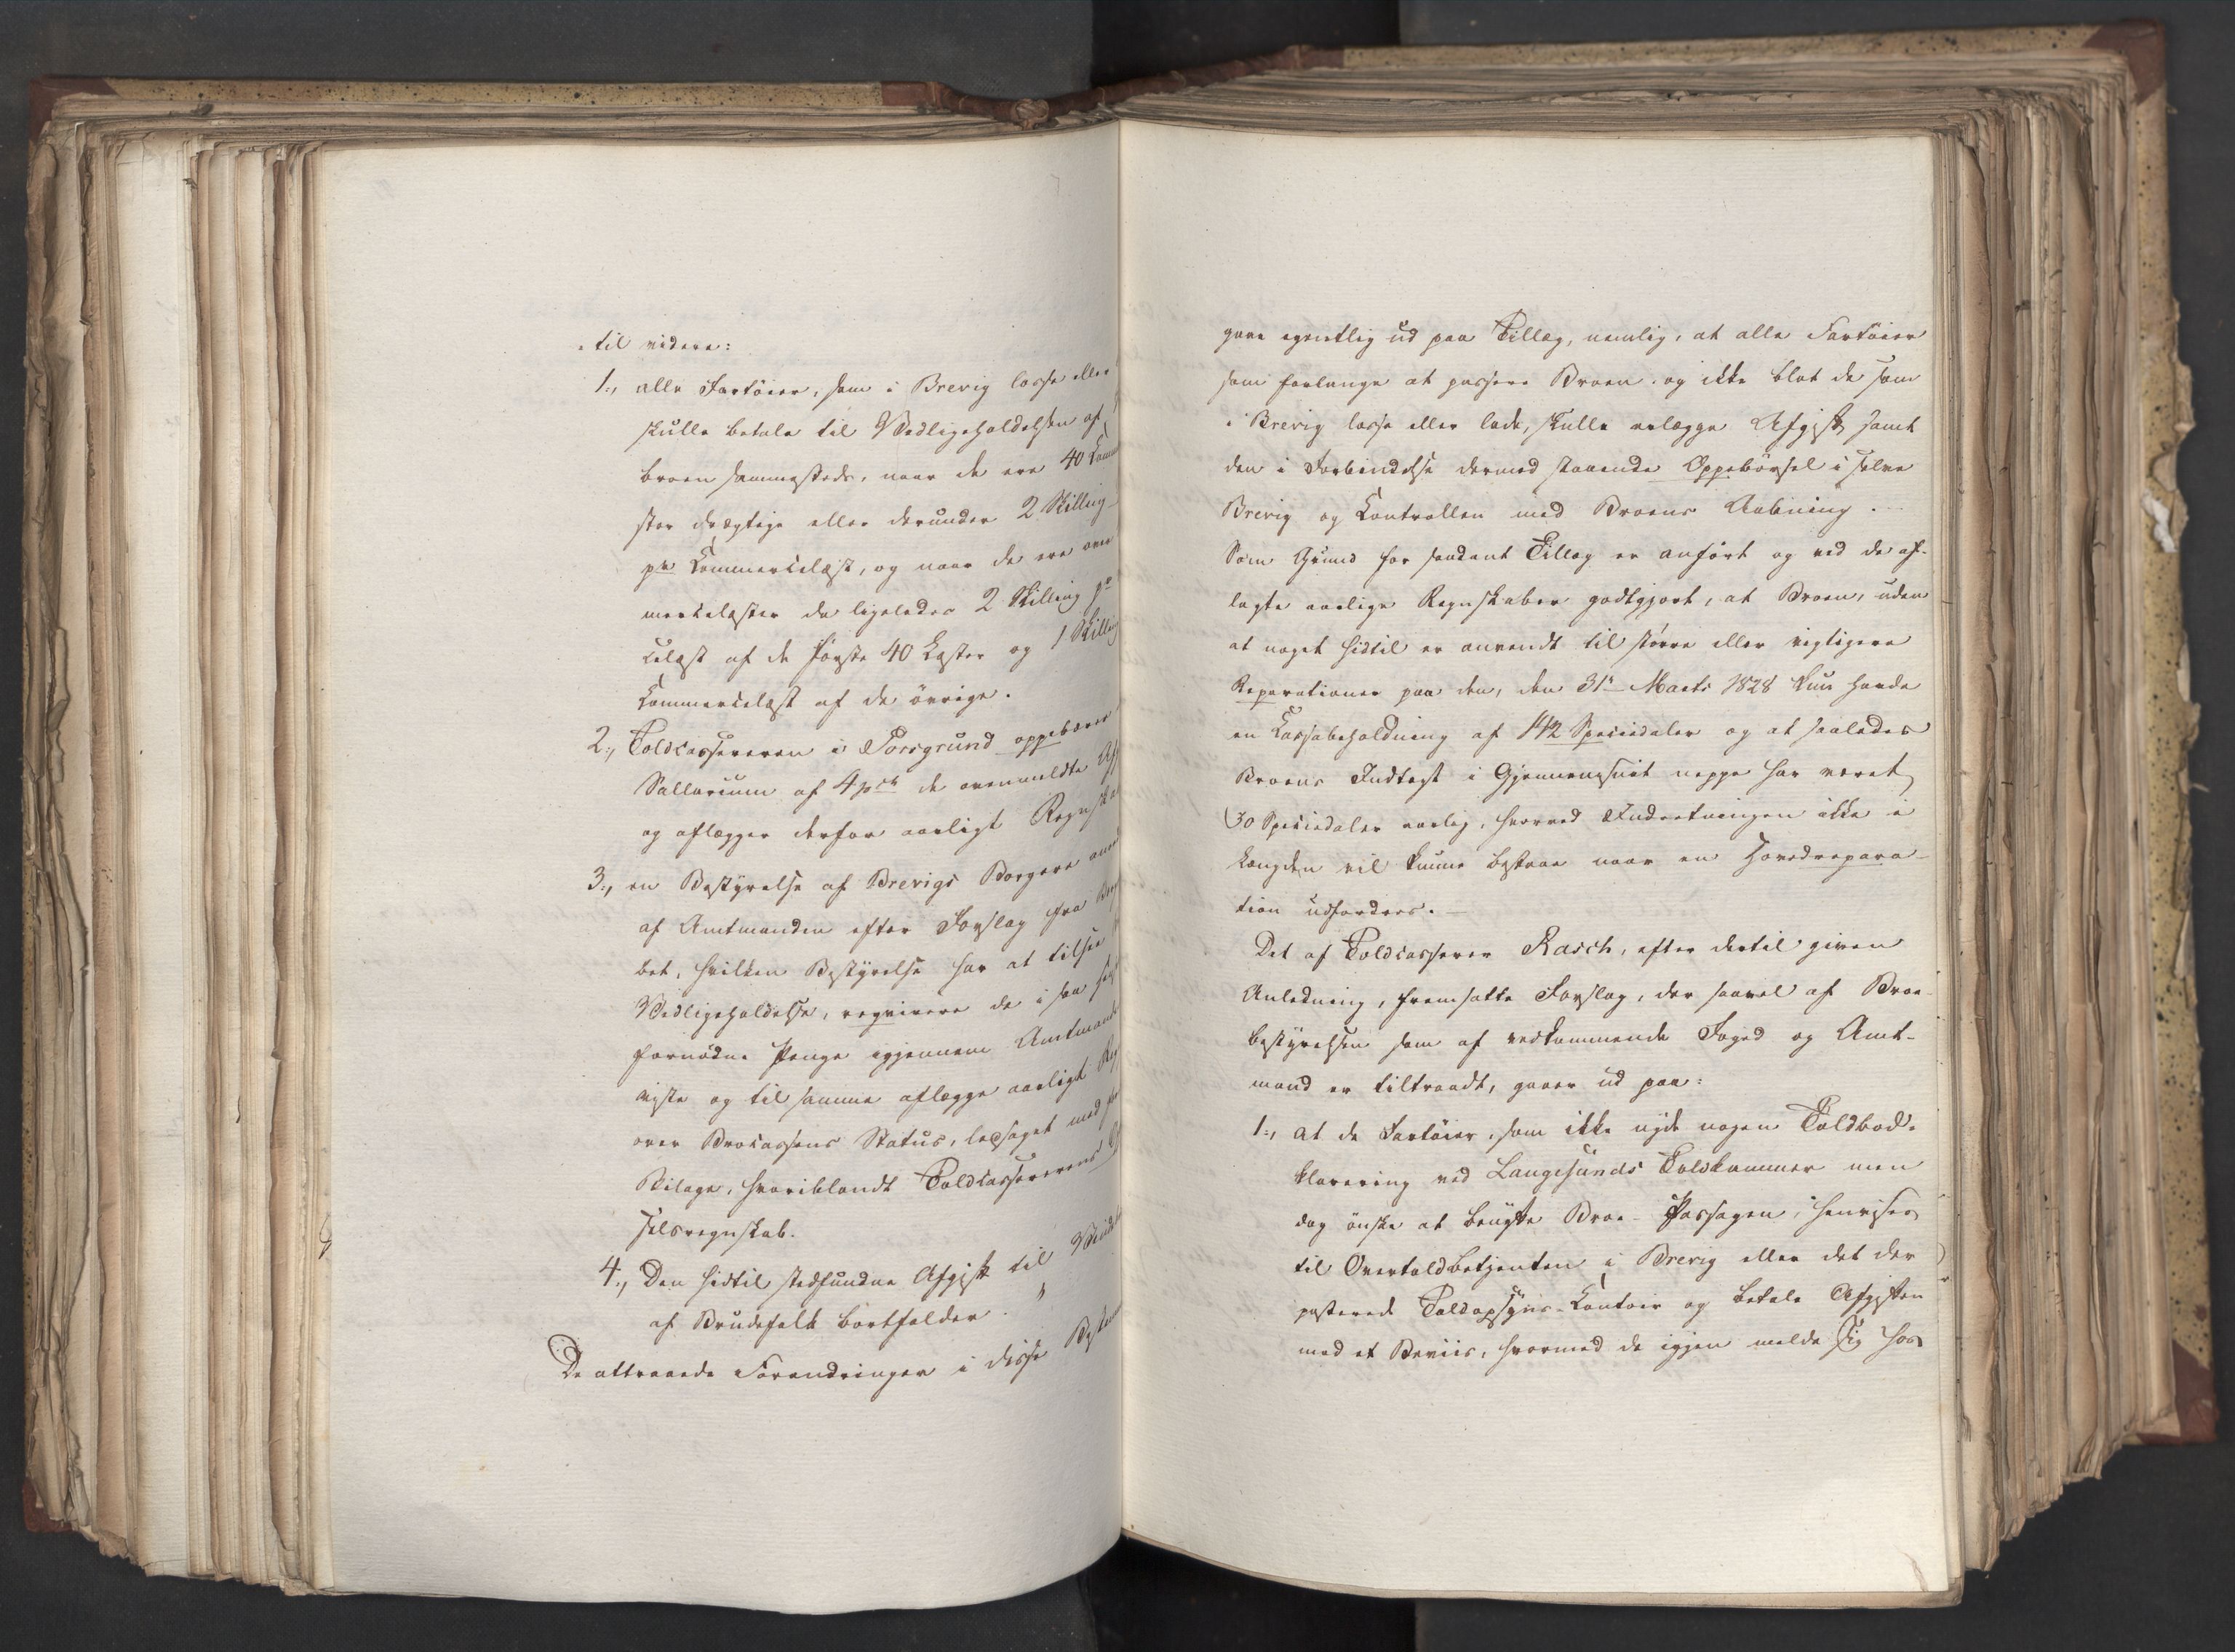 til videre:
1., alle Fartöier, som i Brevig losse eller
skulle betale til Vedligeholdelsen af
broen sammesteds, naar de ere 40 Comm
ster drægtige eller derunder 2 Skilling
pr Commercelæst, og naar de ere over
mercelæster da ligeledes 2 Skilling pr
celæst af de förste 40 Læster og 1 Skilling
Commercelæst af de övrige.
2., Toldcassereren i Porsgrund oppebærer
Sallarium af 4 pct de ovenmeldte Af
og aflægger derfor aarligt Regnska
3., en Bestyrelse af Brevigs Borgere
af Amtmanden efter Forslag fra
bet, hvilken Bestyrelse har at tilsee
Vedligeholdelse, reqvirere de i saa
fornödne Penge igjennem Amtmand
viste og til samme aflægge aarligt
over Brocassens Status, ledsaget med
Bilage, hvoriblandt Toldcassererens
selsregnskab.
4., Den hidtil stedfundne Afgift til
af Brudefolk bortfalder.
De attraaede Forandringer i disse Bestem
gaae egentlig ud paa Tillæg, nemlig, at alle Fartöier
som forlange at passere Broen, og ikke blot de som
i Brevig losse eller lade, skulle erlægge Afgift samt
den i Forbindelse dermed staaende Oppebörsel i selve
Brevig og Controllen med Broens Aabning.
Som Grund for saadant Tillæg er anfört og ved de af-
lagte aarlige Regnskaber godtgjort, at Broen, uden
at noget hidtil er anvendt til större eller vigtigere
Reparationer paa den, den 31te Marts 1828 kun havde
en Cassabeholdning af 142 Speciedaler og at saaledes
Broens Indtægt i Gjennemsnit neppe har været
30 Speciedaler aarlig, hvorved Indretningen ikke i
Længden vil kunne bestaae naar en Hovedrepara-
tion udfordres.
Det af Toldcasserer Rasch, efter dertil given
Anledning, fremsatte Forslag, der saavel af Broe-
bestyrelsen som af vedkommende Foged og Amt-
mand er tiltraadt, gaaer ud paa:
1., at de Fartöier, som ikke nyde nogen Toldbod-
klarering ved Langesunds Toldkammer men
dog önske at benytte Broe-Passagen, henvises
til Overtoldbetjenten i Brevig eller det der
posterede Toldopsyns-Contoir og betale Afgiften
mod et Beviis, hvormed de igjen melde sig hos